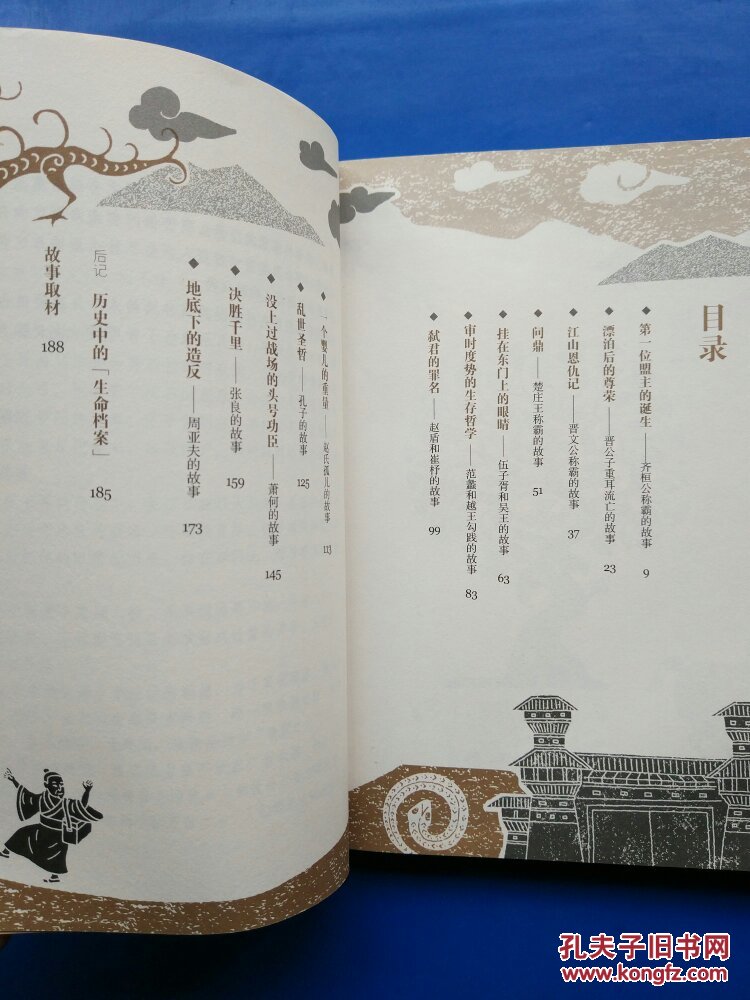 目录
第一位盟主的诞生——齐桓公称霸的故事 9
漂泊后的尊荣——晋公子重耳流亡的故事 23
江山恩仇记——晋文公称霸的故事 37
问鼎——楚庄王称霸的故事 51
挂在东门上的眼睛——伍子胥和吴王的故事 63
审时度势的生存哲学——范蠡和越王勾践的故事 83
弑君的罪名——赵盾和崔杼的故事 99
一个婴儿的重量——赵氏孤儿的故事 113
乱世圣哲——孔子的故事 125
没上过战场的头号功臣——萧何的故事 145
决胜千里——张良的故事 159
地底下的造反——周亚夫的故事 173
后记 历史中的「生命档案」 185
故事取材 188
孔夫子旧书网
www.kongfz.com